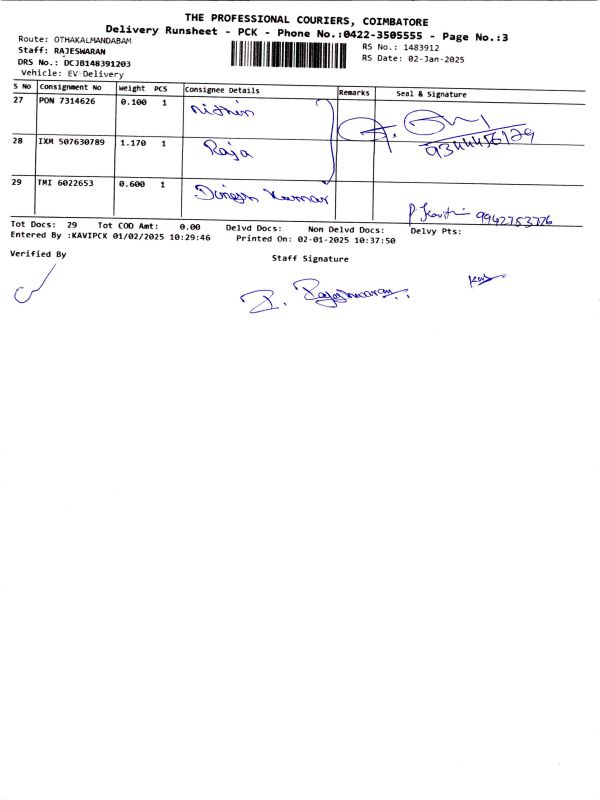 THE PROFESSIONAL COURIERS, COIMBATORE
Delivery Runsheet - PCK - Phone No.:0422-3505555 - Page No.:3
Route: OTHAKALMANDABAM
RS No.: 1483912
Staff: RAJESWARAN
RS Date: 02-Jan-2025
DRS No.: DCJB148391203
Vehicle: EV Delivery
S No Consignment No Weight PCS Consignee Details Remarks Seal & Signature
27 PON 7314626 0.100 1 Nithin
9344456129
28 IXM 507630789 1.170 1 Raja
29 TMI 6022653 0.600 1 Dinesh Kumar
P. Kavitha 9942753776
Tot Docs: 29 Tot COD Amt: 0.00 Delvd Docs: Non Delvd Docs: Delvy Pts:
Entered By :KAVIPCK 01/02/2025 10:29:46 Printed On: 02-01-2025 10:37:50
Verified By
Staff Signature
R. Rajeshwaran